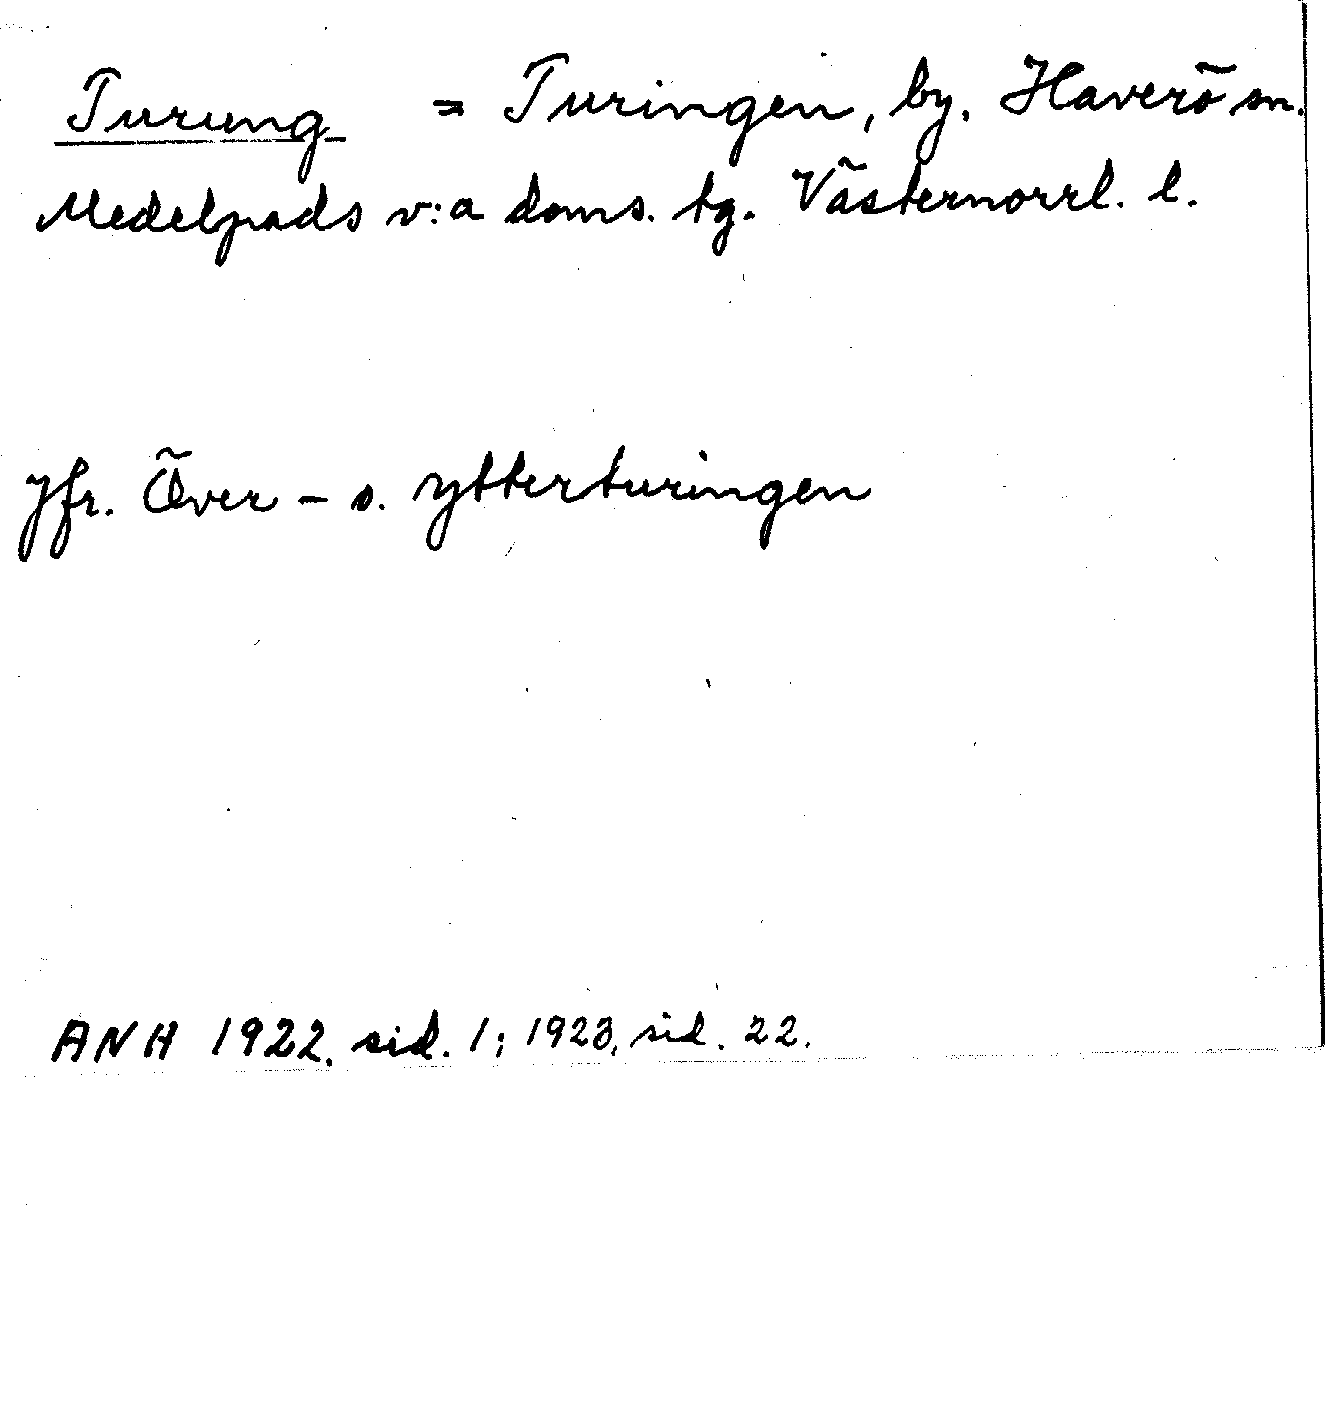 Turung = Turingen, by. Haverö sn.
Medelpads v:a doms. tg. Västernorrl. l.
Jfr. Över- o. ytterturingen
ANH 1922, sid. 1; 1923, sid. 22.